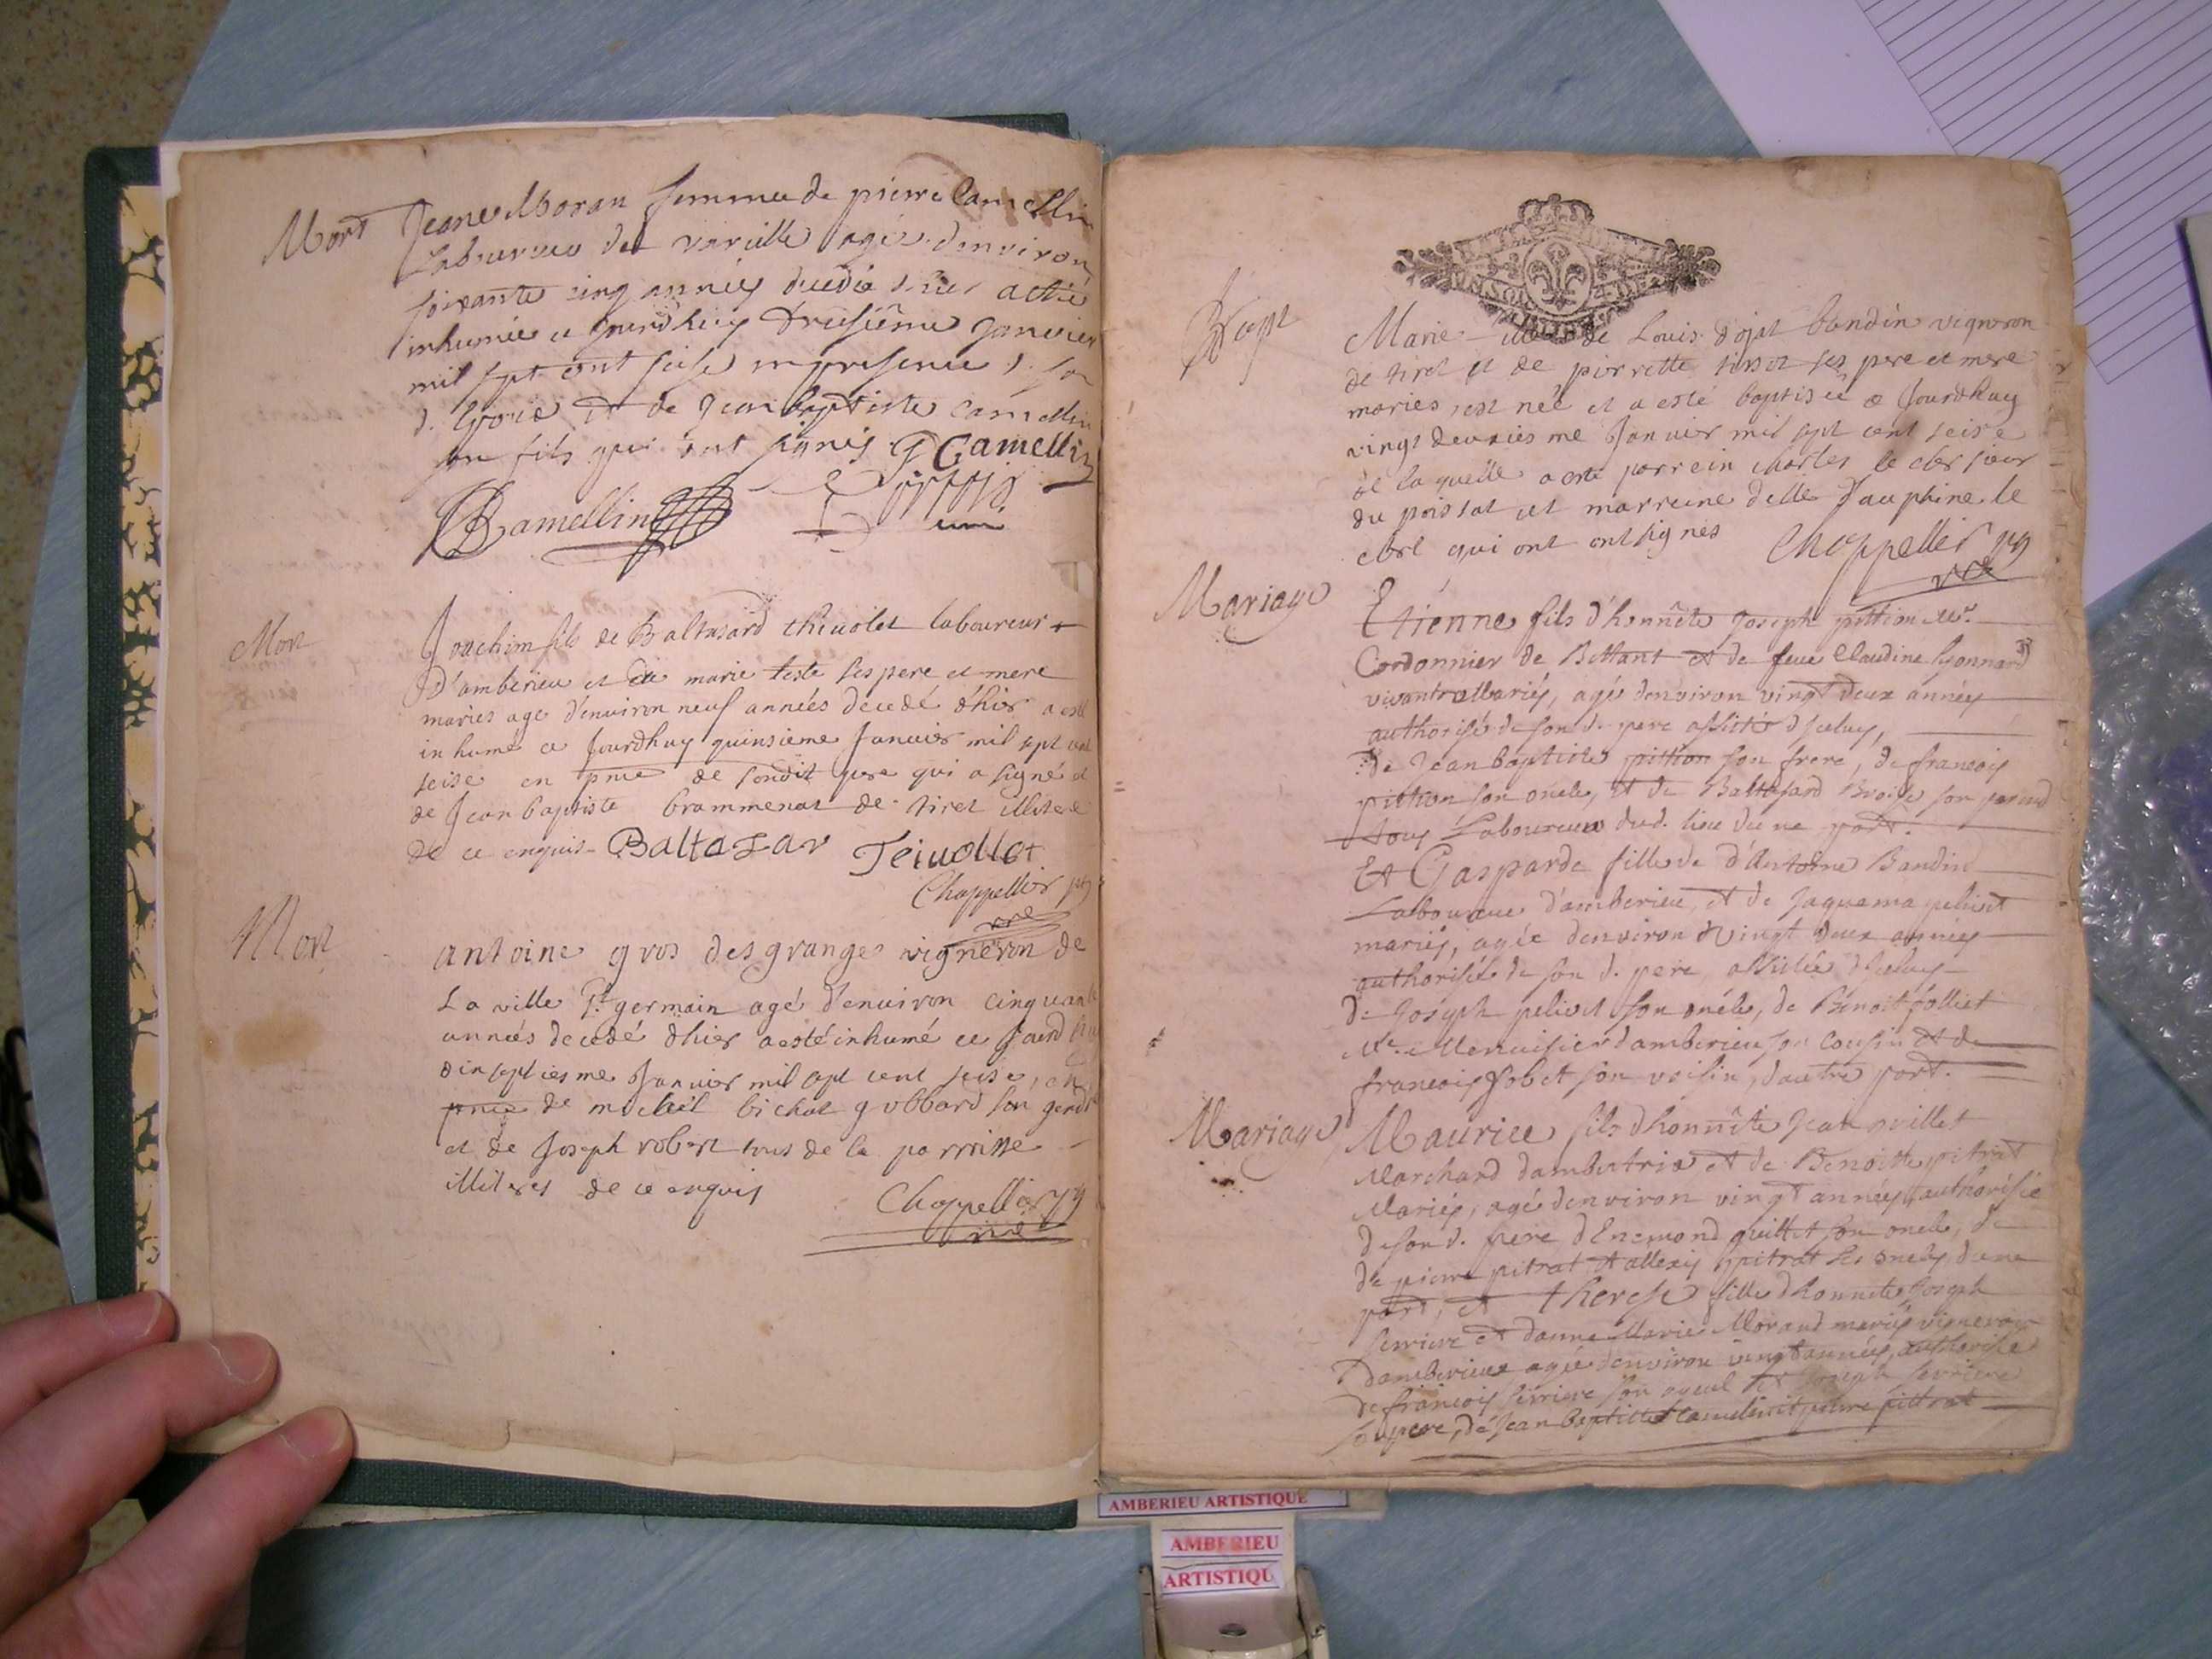 Mort Jeane Moran femme de pierre Camellin
Laboureur de vareille agée d'environ
soixante cinq années decedée d'hier a esté
inhumée ce jourd'huy treisiême Janvier
mil sept cent seise en presence de son
d. et de Jean baptiste Camellin
son fils qui ont signés G Camellin
JB Camellin
Mort
Joachim fils de Baltasard thiuolet laboureur
D'amberieu et de marie teste ses pere et mere
mariés agé d'environ neuf années décedé d'hier a esté
inhumé ce Jourdhuy quinsieme Janvier mil sept cent
seise en pnce de sondit pere qui a signé et
de Jean baptiste brammenat de tiret illiteré
de ce enquis Baltasar Teiuollet
Chappellier
Mort
antoine gros des granges vigneron de
La ville St germain agé d'environ cinquante
années decedé d'hier a esté inhumé ce Jourdhuy
dinseptiesme Janvier mil sept cent seise, en
pnce de michel bichat gobbard son gendre
et de Joseph robert tous de la parroisse
illiteres de ce enquis Chappellier
Bapt
Marie fille de Louis dojat bondin vigneron
de tiret et de pierrette tissot ses pere et mere
mariés, est née et a esté baptisée ce Jourdhuy
vingt deusiesme Janvier mil sept cent seise
de laquelle a esté parrein Charles le cler sieur
du poissat et marreine delle Dauphine le
clerc qui ont ont signés Chappellier
Mariage
Etienne fils d'honnête Joseph pittion Me.
Cordonnier de Bettant et de feue Claudine Lyonnard
vivant Mariés, agé d'environ vingt deux années
authorisé de son d. pere assisté d'iceluy,
De Jean baptiste pittion son frere, de francois
pittion son oncle, et de Baltasard Broise son parent
tous Laboureurs dud. lieu d'une part.
Et Gasparde fille de d'Antoine Bandin
Laboureur d'amberieu, et de Jaquema peliset
mariés, agée d'environ vingt deux années
authorisée de son d. pere assistée d'iceluy
de Joseph peliset son oncle, de Benoit folliet
Me. Menuisier d'amberieu son Cousin et de
francois Gobet son voisin, d'autre part.
Mariage Maurice fils d'honnête Jean quillet
Marchand d'ambutrix et de Benoitte pitrat
Mariés, agé d'environ vingt années, authorisé
de son d. pere d'Enemond quillet son oncle, de
de pierre pitrat et allexis pitrat ses oncles d'une
part, et therese fille d'honnete Joseph
serriere et d'anne Marie Morand mariés vignerons
D'amberieux agée d'environ vingt années, authorisée
de francois serriere son ayeul et Joseph serriere
son pere, de Jean baptiste Camelin et pierre pittrat
AMBERIEU ARTISTIQUE
AMBERIEU
ARTISTIQU